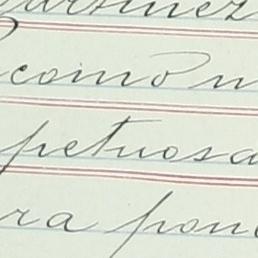 artinez
como n
petuosa
ra pone